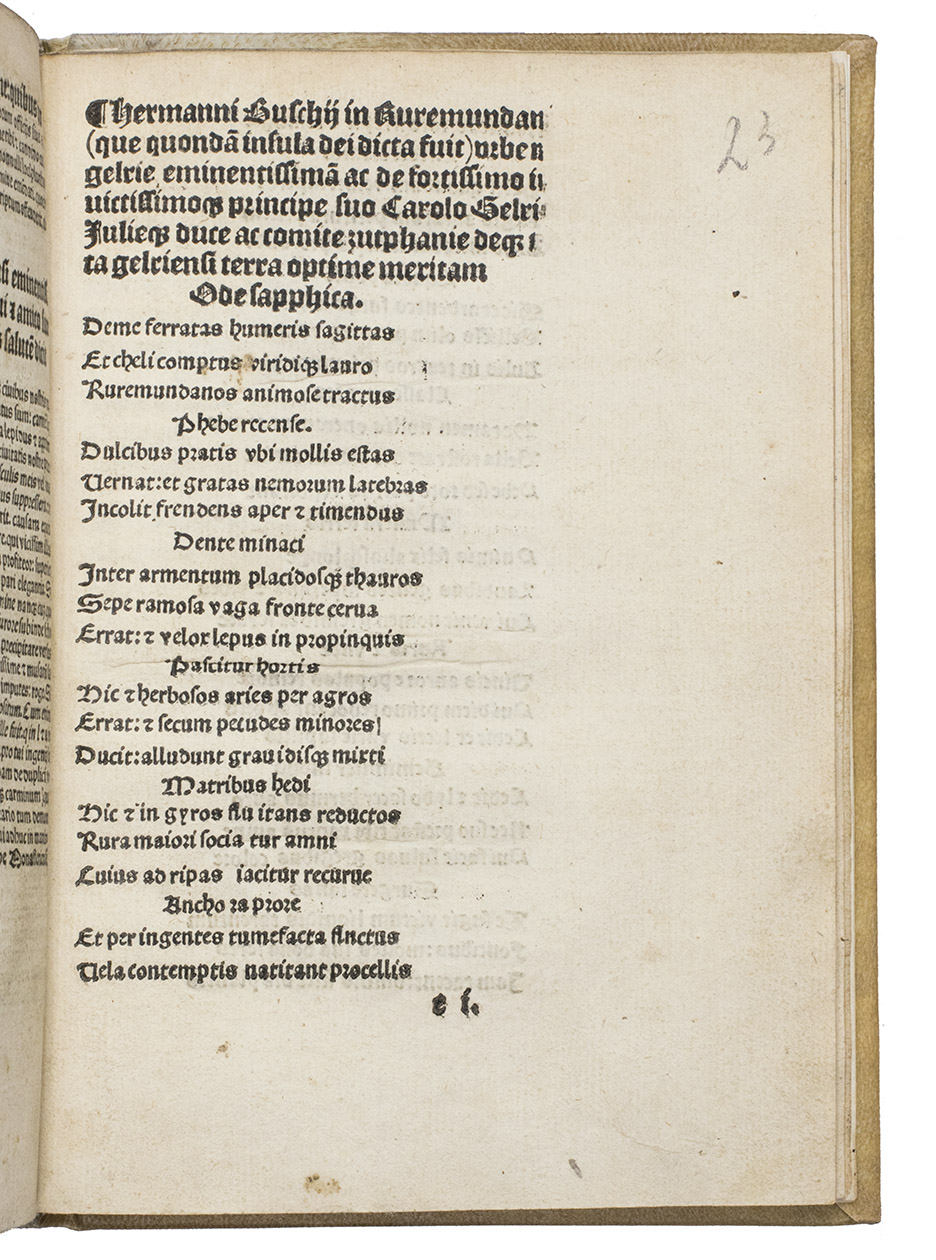 23
¶ Hermanni Buschij in Ruremundan
(que quondā insula dei dicta fuit) vrbem
gelrie eminentissimā ac de fortissimo
uictissimoqꝫ principe suo Carolo Gelri
Julieqꝫ duce ac comite zutphanie deqꝫ
ta gelriensi terra optime meritam
Ode sapphica.
Deme ferratas humeris sagittas
Et cheli comptus viridiqꝫ lauro
Ruremundanos animose tractus
Phebe recense.
Dulcibus pratis vbi mollis estas
Uernat: et gratas nemorum latebras
Incolit frendens aper ⁊ timendus
Dente minaci
Inter armentum placidosqꝫ thauros
Sepe ramosa vaga fronte cerua
Errat: ⁊ velox lepus in propinquis
Pascitur hortis
Hic ⁊ herbosos aries per agros
Errat: ⁊ secum pecudes minores
Ducit: alludunt grauidisqꝫ mixti
Matribus hedi
Hic ⁊ in gyros flu itans reductos
Rura maiori socia tur amni
Luius ad ripas iacitur recurue
Ancho ra prore
Et per ingentes tumefacta fluctus
Uela contemptis natitant procellis
e i.